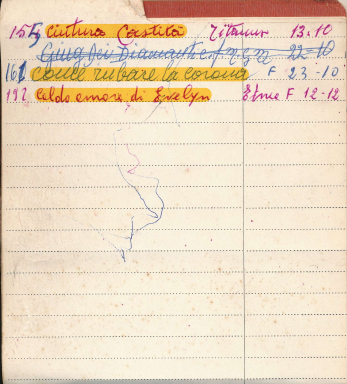 155 cintura Castità Titanus 13.10
Ging dei Diamanti 22-10
161 come rubare la corona F 23-10
192 caldo amore di Evelyn F 12-12